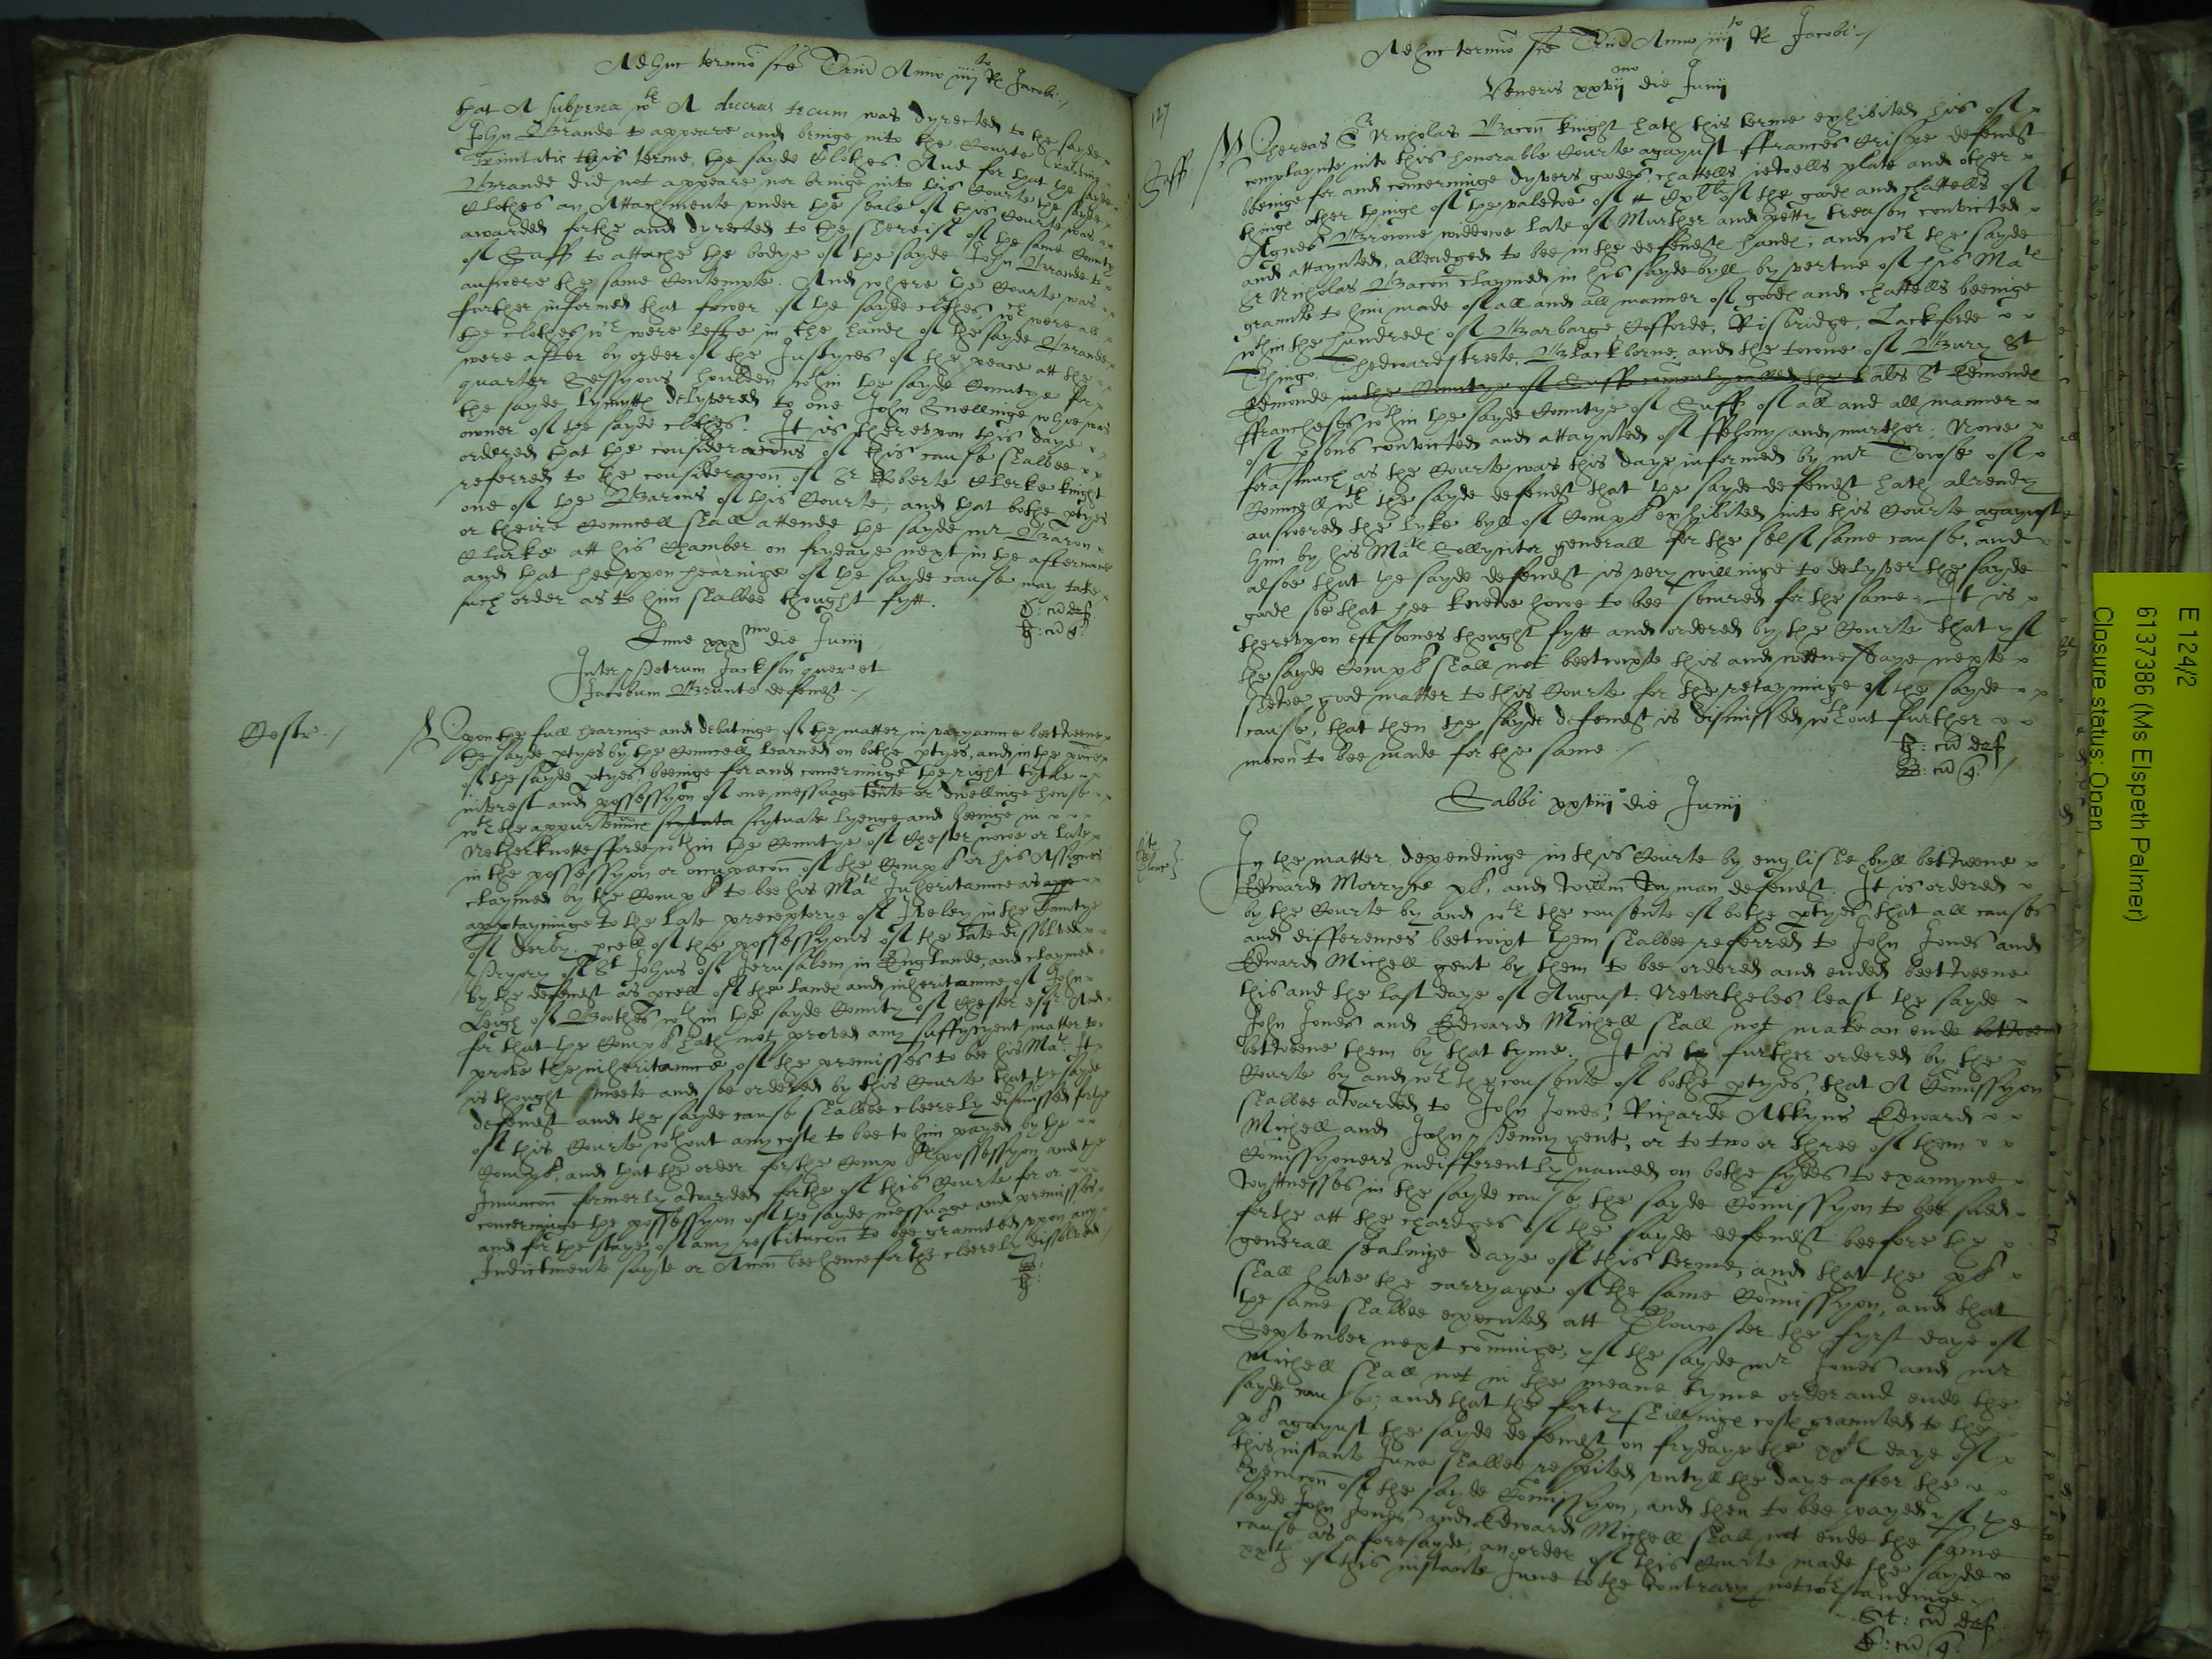 Adhuc termino sce Trin Anno iiijto Re Jacobi
that A subpena wth A ducas tecum was dyrected to the sayde
John Brande to appeare and bringe into the Courte Crastino
Trinitatis this terme, the sayde Clothes And for that the sayde
Brande did not appeare nor bringe into this Courte the sayde
Clothes an Attachmente under the seale of this Courte was
awarded forthe and dyrected to the shereif of the same County
of Suff to attache the bodye of the sayde John Brande to
answere the same Contempte. And where the Courte was
further informed that fower of the sayde clothes wch were all
the clothes wch were lefte in the hande of the sayde Brande
were after by order of the Justyces of the peace att the
quarter Sessyons houlden wthin the sayde Countye for
the sayde Lymytte delyvered to one John Snellinge whoe was
owner of the sayde clothes. It is thereupon this daye
ordered that the consideracons of this cause shalbee
referred to the consideracon of Sr Roberte Clerke knight
one of the Barons of this Courte, and that bothe ptyes
or theire Councell shall attende the sayde mr Baron
Clarke att his Chamber on frydaye next in the afternoone
and that hee uppon hearinge of the sayde cause may take
such order as to him shalbee thought fytt.
Lune xxxmo die Junij
Inter Petrum Jackson quer et
Jacobum Brunte defend
Cestr
Upon the full hearinge and debatinge of the matter in varyannce betweene
the sayde ptyes by the Councell learned on bothe ptyes, and in the pnce
of the sayde ptyes, beeinge for and concerninge the right tytle
interest and possessyon of one messuage tente or dwellinge howse
wth the appurtennce scytuate scytuate lyenge and beeinge in
Netherknottesforde wthin the Countye of Chester nowe or late
in the possessyon or occupacon of the Compl or his Assignes
claymed by the Compl to bee his Mats Inheritannce as app
apptayninge to the late preceptorye of Iveley in the Countye
of derby. pcell of the possessyons of the late dissolved
Pryory of St Johns of Jerusalem in Englande, and claymed
by the defend as pcell of the lande and inheritannce of John
Leigh of Boothes wthin the sayde County of Chester esqr And
for that the Compl hath not proved any suffycyent matter to
prove the inheritannce of the premisses to bee his Mats. It
is thought meete and so ordered by this Courte that the sayde
defend and the sayde cause shalbee cleerely dismissed forthe
of this Courte wthout any coste to bee to him payed by the
Compl, and that the order for the Compl possessyon and the
Iniuncon formerly awarded forthe of this Courte for or
concerninge the possessyon of the sayde messuage and premisses
and for the staye of any restitucon to bee graunted upon any
Indictmente suyte or Accon bee henceforthe cleerely dissolved
127
Adhuc termino sce Trin Anno iiijto Re Jacobi
Veneris xxvijmo die Junij
Suff
Whereas Sr Nicholas Bacon knight hath this terme exhibited his
complaynte into this honorable Courte agaynst ffrances Crispe defend
beeinge for and concerninge dyvers goods, chattells iewells plate and other
thinge of the valewe of of the goode and chattells of
Agnes Browne widdowe late of Murther and petty treason convicted
and attaynted, alleadged to bee in the defende hande, and wch the sayde
Sr Nicholas Bacon claymed in his sayde byll by vertue of his Mats
graunte to him made of all and all manner of goode and chattells beeinge
wthin the hundrede of Barbarge Cofforde, Risbridge, Lackforde
Thingo, Thedwardstreete, Blackborne, and the towne of Bury St
Edmonde in the Countye of Suff comonly called the alias St Edmonde
ffrancheses wthin the sayde Countye of Suff of all and all manner
of psons convicted and attaynted of ffelony and murther. Nowe
forasmuch as the Courte was this daye informed by mr Towse of
Councell wth the sayde defend that the sayde defend hath already
answered the lyke byll of Compl exhibited into this Courte agaynste
him by his Mats Sollycitor generall for the self same cause, and
alsoe that the sayde defend is very willinge to delyver the sayde
goode so that hee knewe howe to bee secured for the same. It is
thereupon eftsoones thought fytt and ordered by the Courte that yf
the sayde Compl shall not beetwixte this and wednesdaye nexte
shewe good matter to this Courte for the retayninge of the sayde
cause, that then the sayde defend is dismissed wthout further
mocon to bee made for the same.
Sabbi xxviijo die Junij
In the matter dependinge in this Courte by englishe byll betweene
Edward Morryce pl, and Willm Wyman defend. It is ordered
by the Courte by and wth the consente of bothe ptyes that all causes
and differences beetwixt them shalbee referred to John Jones and
Edward Michell gent by them to bee ordered and ended beetweene
this and the last daye of August. Neverthelesse least the sayde
John Jones and Edward Michell shall not make an ende betweene
betweene them by that tyme. It is further ordered by the
Courte by and wth the consente of bothe ptyes, that A Comissyon
shalbee awarded to John Jones, Richarde Atkyns Edward
Michell and John Penny gent, or to two or three of them
Comissyoners indifferently named on bothe sydes to examyne
Wyttnesses in the sayde cause the sayde Comissyon to bee sued
forthe att the chardges of the sayde defend beefore the
generall sealinge daye of this terme, and that the pl
shall have the carryage of the same Comissyon, and that
the same shalbee executed att Gloucester the fyrst daye of
September next cominge, yf the sayde mr Jones and mr
Michell shall not in the meane tyme order and ende the
sayde cause; and that the forty shillinge coste graunted to the
pl agaynst the sayde defend on frydaye the xxth daye of
this instante June shalbee respited untyll the daye after the
execucon of the sayde Comissyon, and then to bee payed yf the
sayde John Jones and Edward Michell shall not ende the same
cause as aforesayde, an order of this Courte made the sayde
xxth of this instante June to the contrary notwthstandinge
E 124/2
6137386 (Ms Elspeth Palmer)
Closure status: Open